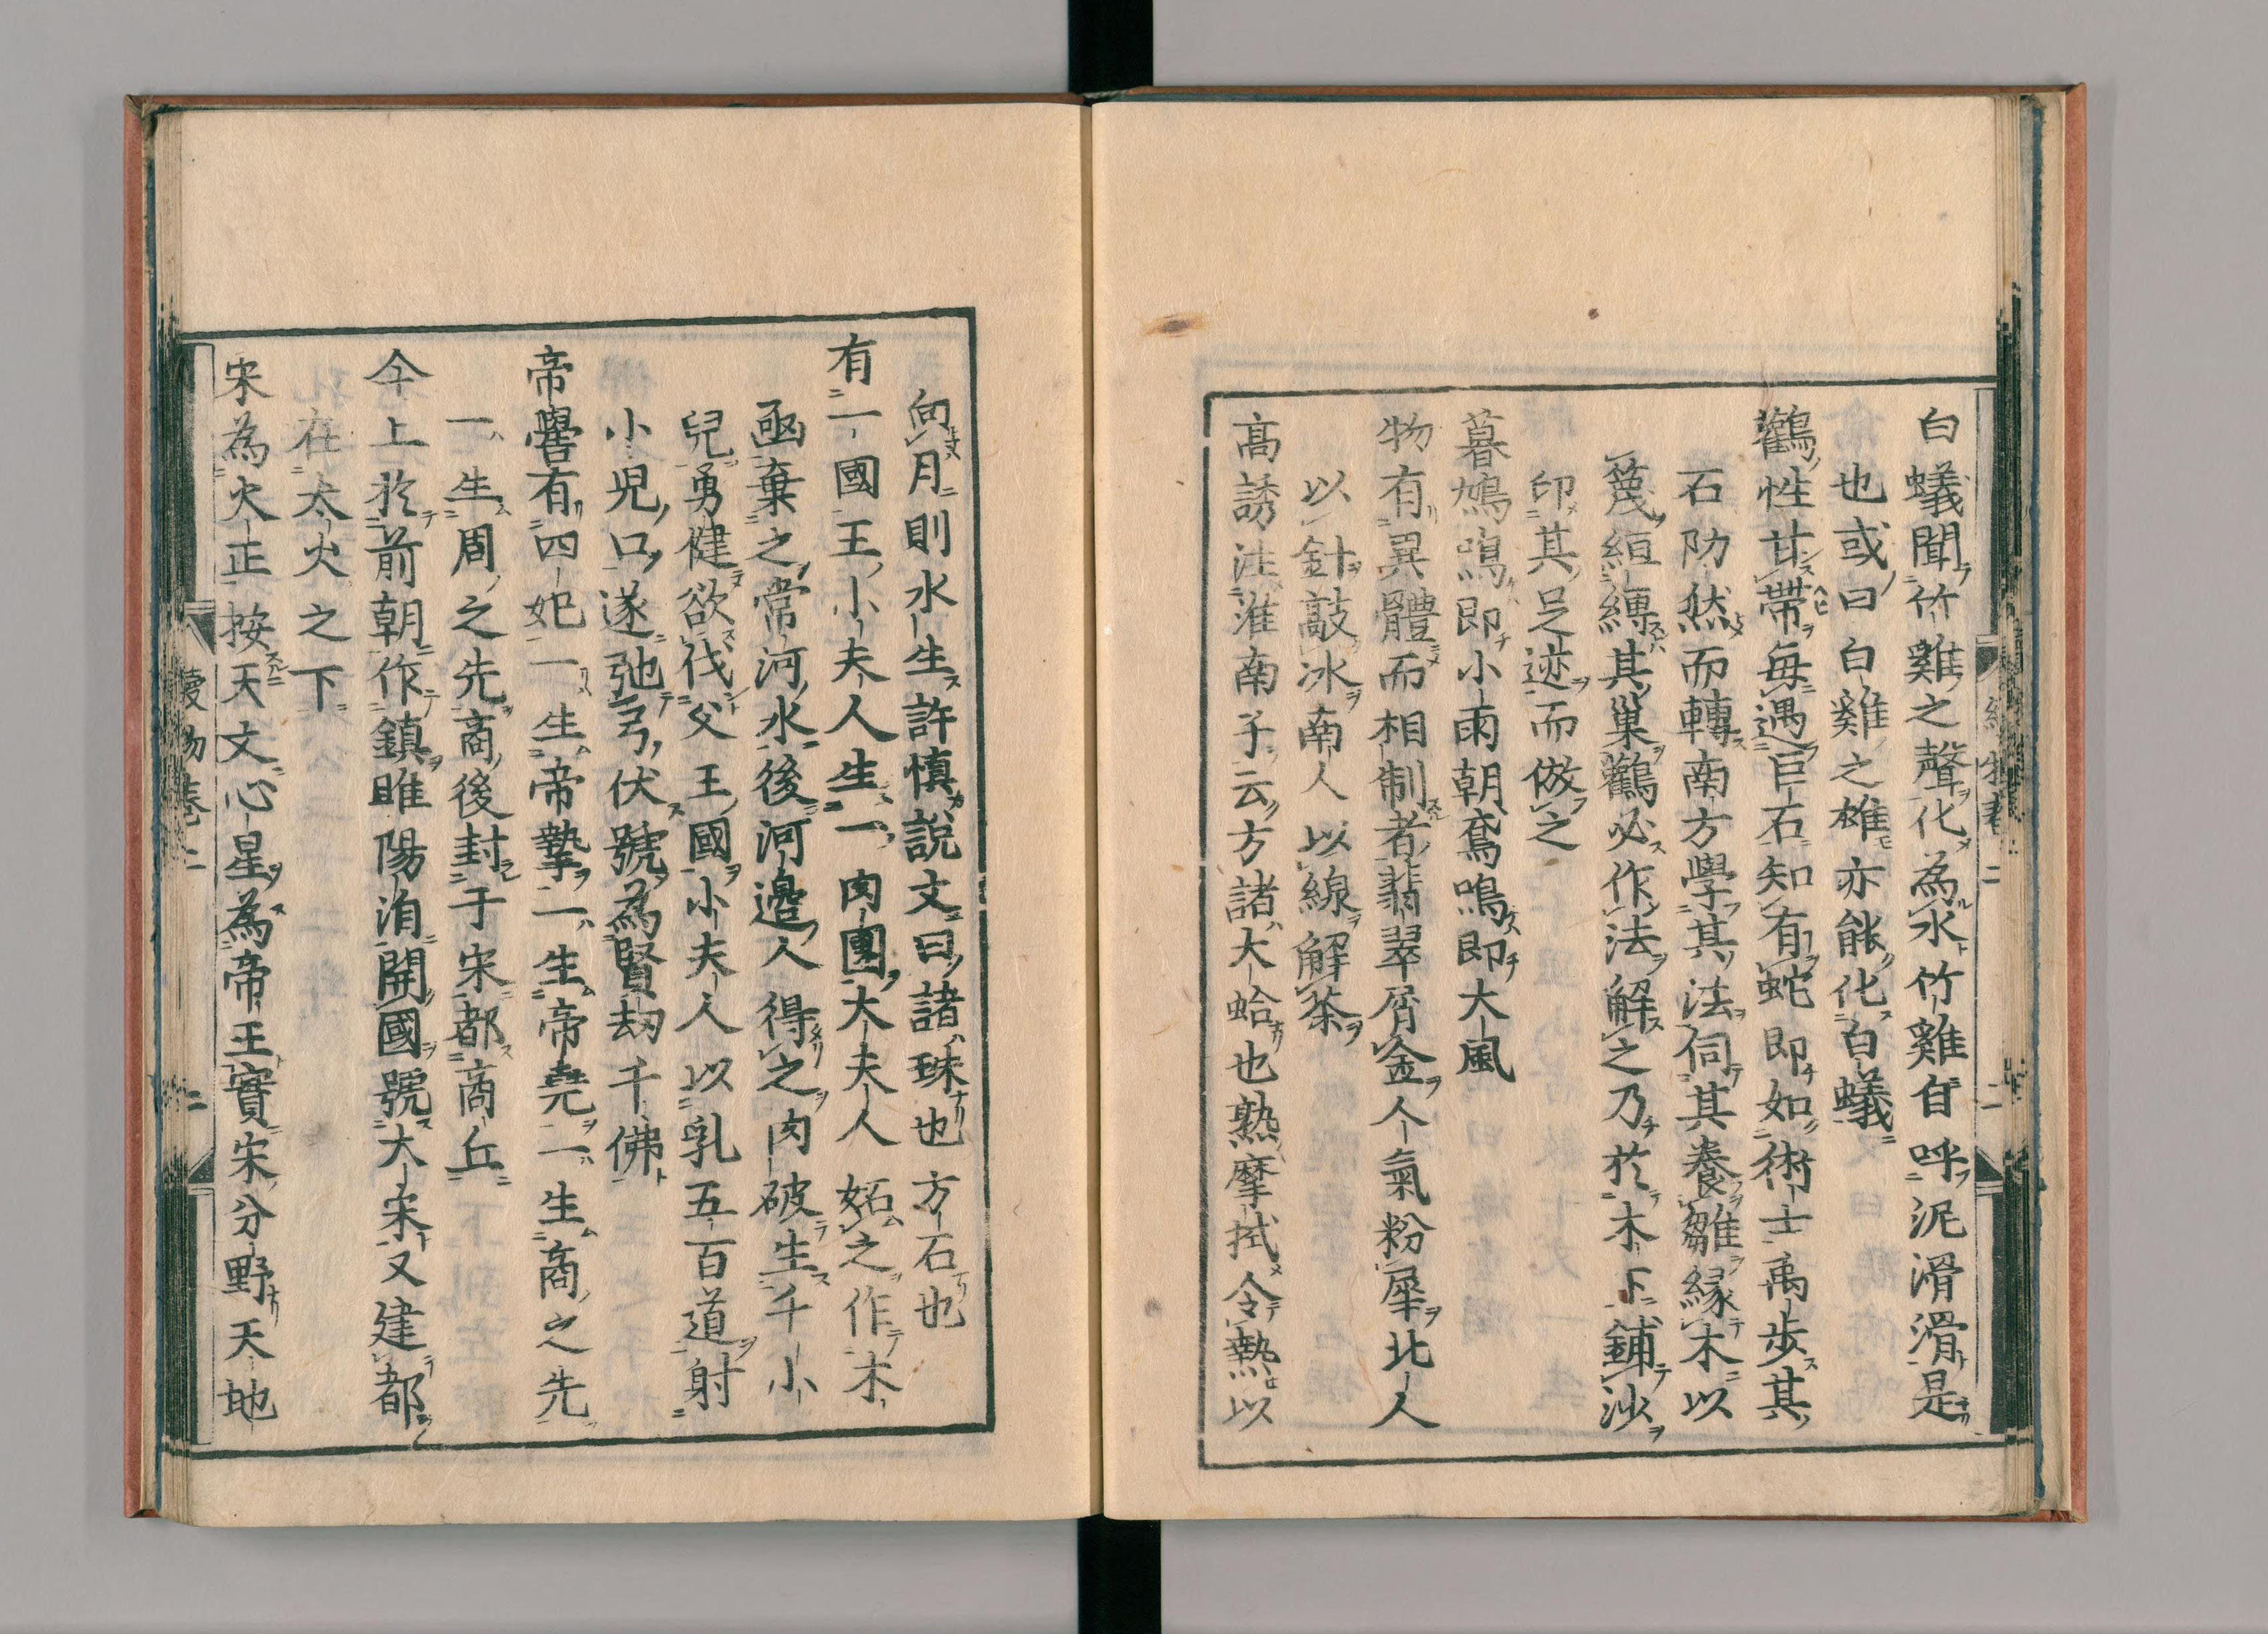 白蟻聞竹雞之聲化為水竹雞自呼泥滑滑是
也或曰白雞之雄亦能化白蟻
鸛性甘帶每遇巨石知有蛇即如術士禹步其
石阞然而轉南方學其法伺其養雛緣木以
篾絙縳其巢鸛必作法解之乃於木下鋪沙
印其足迹而倣之
暮鳩鳴即小雨朝鳶鳴即大風
物有異體而相制者翡翠屑金人氣粉犀北人
以針敲冰南人以線解茶
高誘注淮南子云方諸大蛤也熟摩拭令熱以
向月則水生許慎說文曰諸珠也方石也
有一國王小夫人生一肉團大夫人妬之作木
凾棄之常河水後河邊人得之肉破生千小
兒勇健欲伐父王國小夫人以乳五百道射
小児口遂弛弓伏號為賢劫千佛
帝嚳有四妃一生帝摯一生帝堯一生商之先
一生周之先商後封于宋都商丘
今上於前朝作鎮睢陽洎開國號大宋又建都
在大火之下
宋為火正按天文心星為帝王實宋分野天地
續物卷二
二